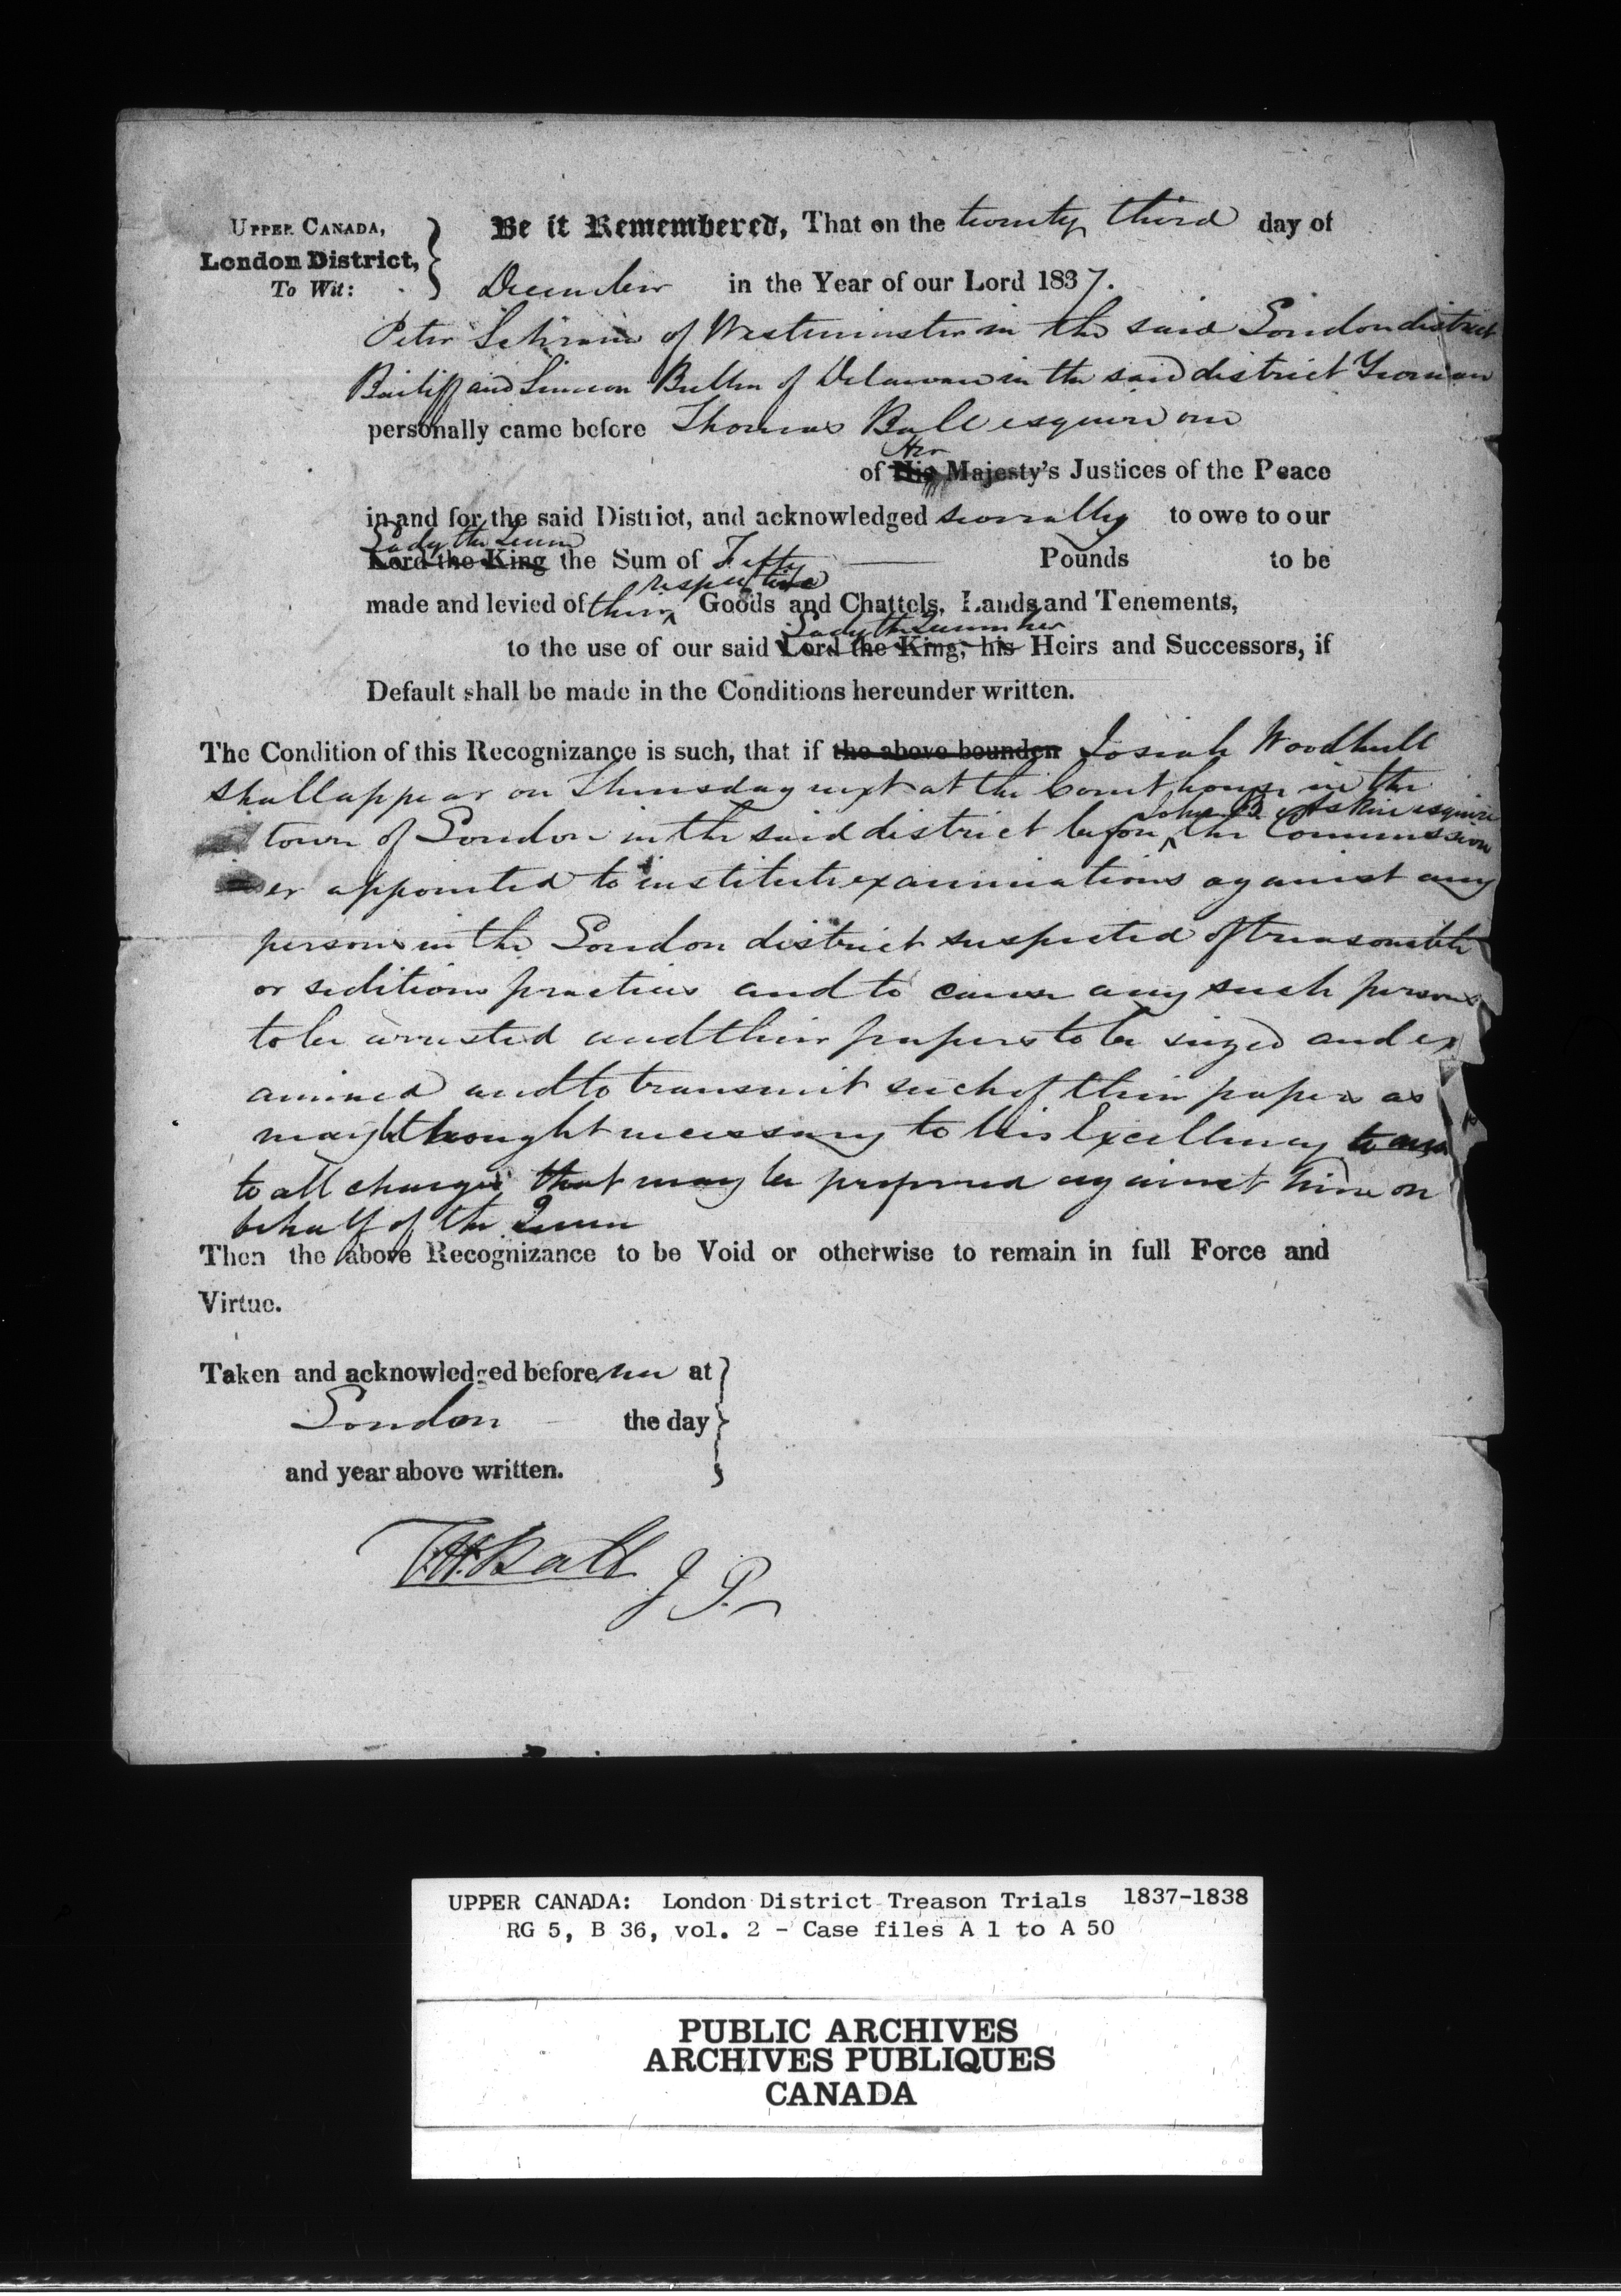 UPPER CANADA,
London District,
To Wit:
Be it Remembered, That on the twenty third day of
December in the Year of our Lord 1837.
Peter Schram of Westminster in the said London district
Bailiff and Simeon Bullen of Delaware in the said district Yeoman
personally came before Thomas Ball esquire one
Her
of His Majesty's Justices of the Peace
in and for the said District, and acknowledged severally to owe to our
Lady the Queen
Lord the King the Sum of Fifty Pounds to be
respective
made and levied of their Goods and Chattels, Lands and Tenements,
Lady the Queen her
to the use of our said Lord the King, his Heirs and Successors, if
Default shall be made in the Conditions hereunder written.
The Condition of this Recognizance is such, that if the above bounden Josiah Woodhull
shall appear on Thursday next at the Court house in the
John B. Askin esquire
town of London in the said district before the Commission
er appointed to institute examinations against any
persons in the London district suspected of treasonable
or seditious practices and to cause any such persons
to be arrested and their papers to be seized and ex
amined and to transmit such of their papers as
may be thought necessary to his Excellency to answer
to all charges that may be preferred against him on
behalf of the Queen
Then the above Recognizance to be Void or otherwise to remain in full Force and
Virtue.
Taken and acknowledged before me at
London the day
and year above written.
T.H. Ball J P.
UPPER CANADA: London District Treason Trials 1837-1838
RG 5, B 36, vol. 2 - Case files A 1 to A 50
PUBLIC ARCHIVES
ARCHIVES PUBLIQUES
CANADA